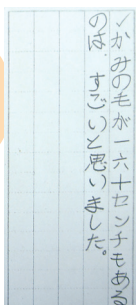 ✓かみの毛が一六十センチもある
のは、すごいと思いました。